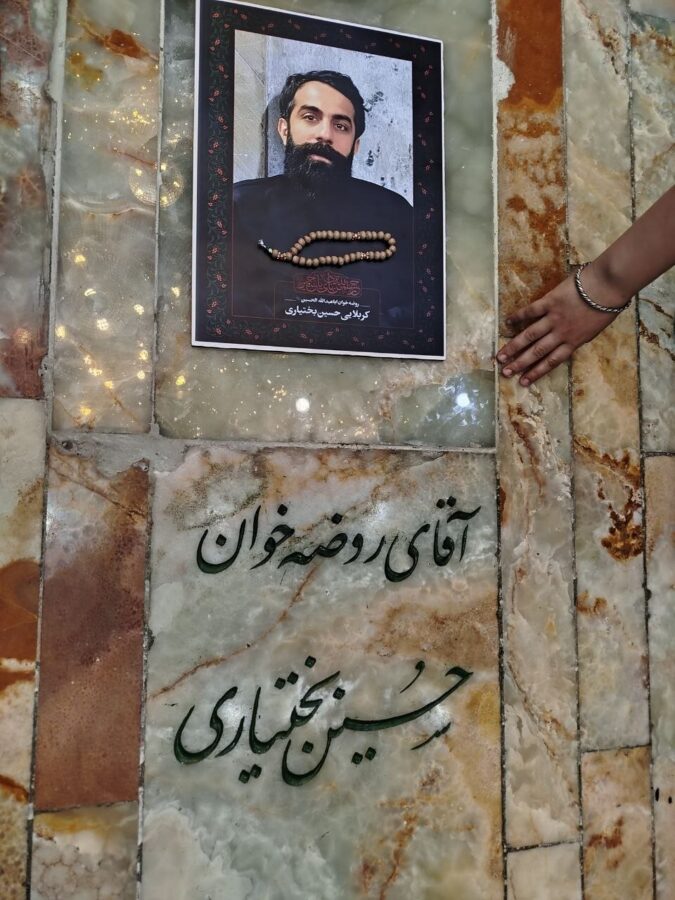 روضه‌خوان اباعبدالله الحسین
کربلایی حسین بختیاری
آقای روضه خوان
حُسین بختیاری